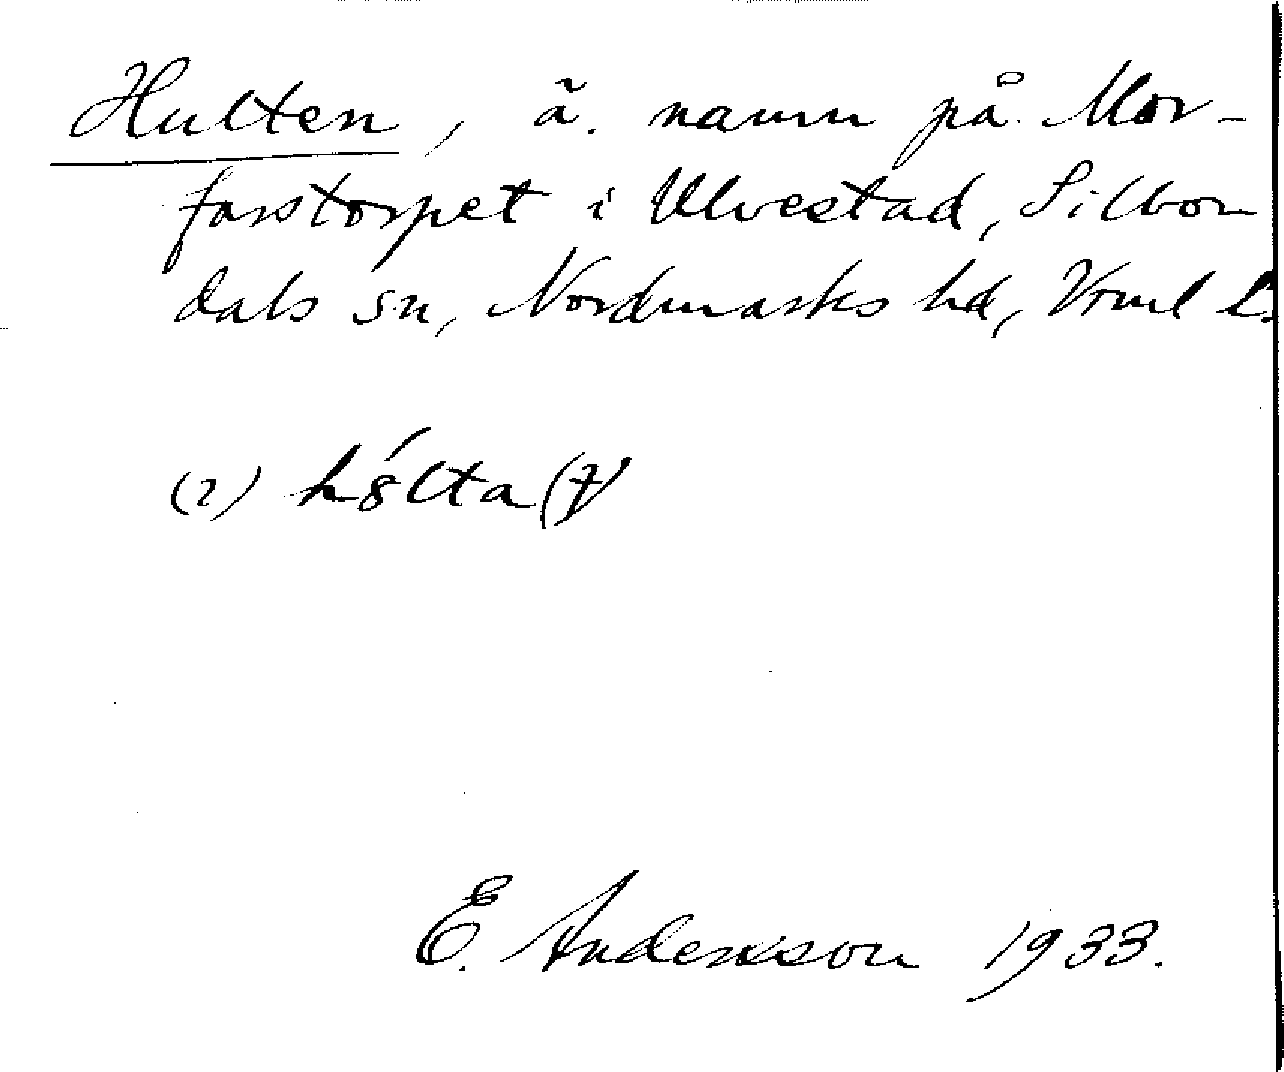 Hulten, ä. namn på Mor-
farstorpet i Ulvestad, Silbo
dals sn, Nordmarks hd, Vrml l.
(2) hólta(
E. Andersson 1933.